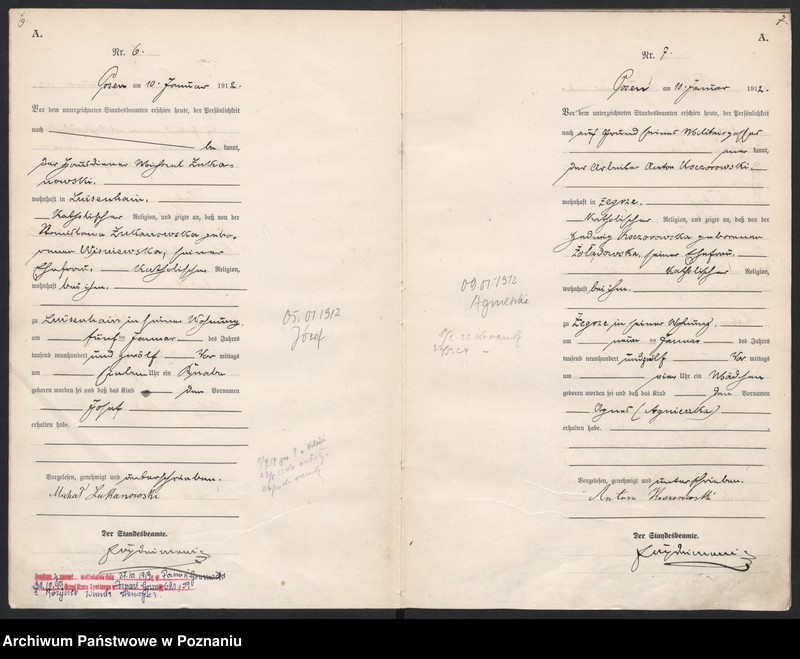 6
A.
Nr. 6.
Posen am 10. Januar 1912.
Vor dem unterzeichneten Standesbeamten erschien heute, der Persönlichkeit
nach be kannt,
der Hausdiener Michael Luka-
nowski.
wohnhaft in Luisenhain.
Katholischer Religion, und zeigte an, daß von der
Stanislawa Lukanowska gebo-
renen Wisniewska, seiner
Ehefrau. Katholischer Religion,
wohnhaft bei ihm.
zu Luisenhain in seiner Wohnung.
am fünf ten Januar des Jahres
tausend neunhundert und zwölf Vor mittags
um sieben Uhr ein Knabe
geboren worden sei und daß das Kind den Vornamen
Josef
erhalten habe.
Vorgelesen, genehmigt und unterschrieben.
Michał Lukanowski
Der Standesbeamte.
05.01.1912
Józef
7.
A.
Nr. 7.
Posen am 10. Januar 1912.
Vor dem unterzeichneten Standesbeamten erschien heute, der Persönlichkeit
nach auf Grund seines Militairpasses
aner kannt,
der Arbeiter Anton Koczorowski.
wohnhaft in Zegrze.
Katholischer Religion, und zeigte an, daß von der
Hedwig Koczorowska geborenen
Żołądowska, seiner Ehefrau.
Katholischer Religion,
wohnhaft bei ihm.
zu Zegrze in seiner Wohnung.
am neun ten Januar des Jahres
tausend neunhundert und zwölf Vor mittags
um vier Uhr ein Mädchen
geboren worden sei und daß das Kind den Vornamen
Agnes (Agnieszka)
erhalten habe.
Vorgelesen, genehmigt und unterschrieben.
Anton Koczorowski
Der Standesbeamte.
09.01.1912
Agnieszka
Archiwum Państwowe w Poznaniu